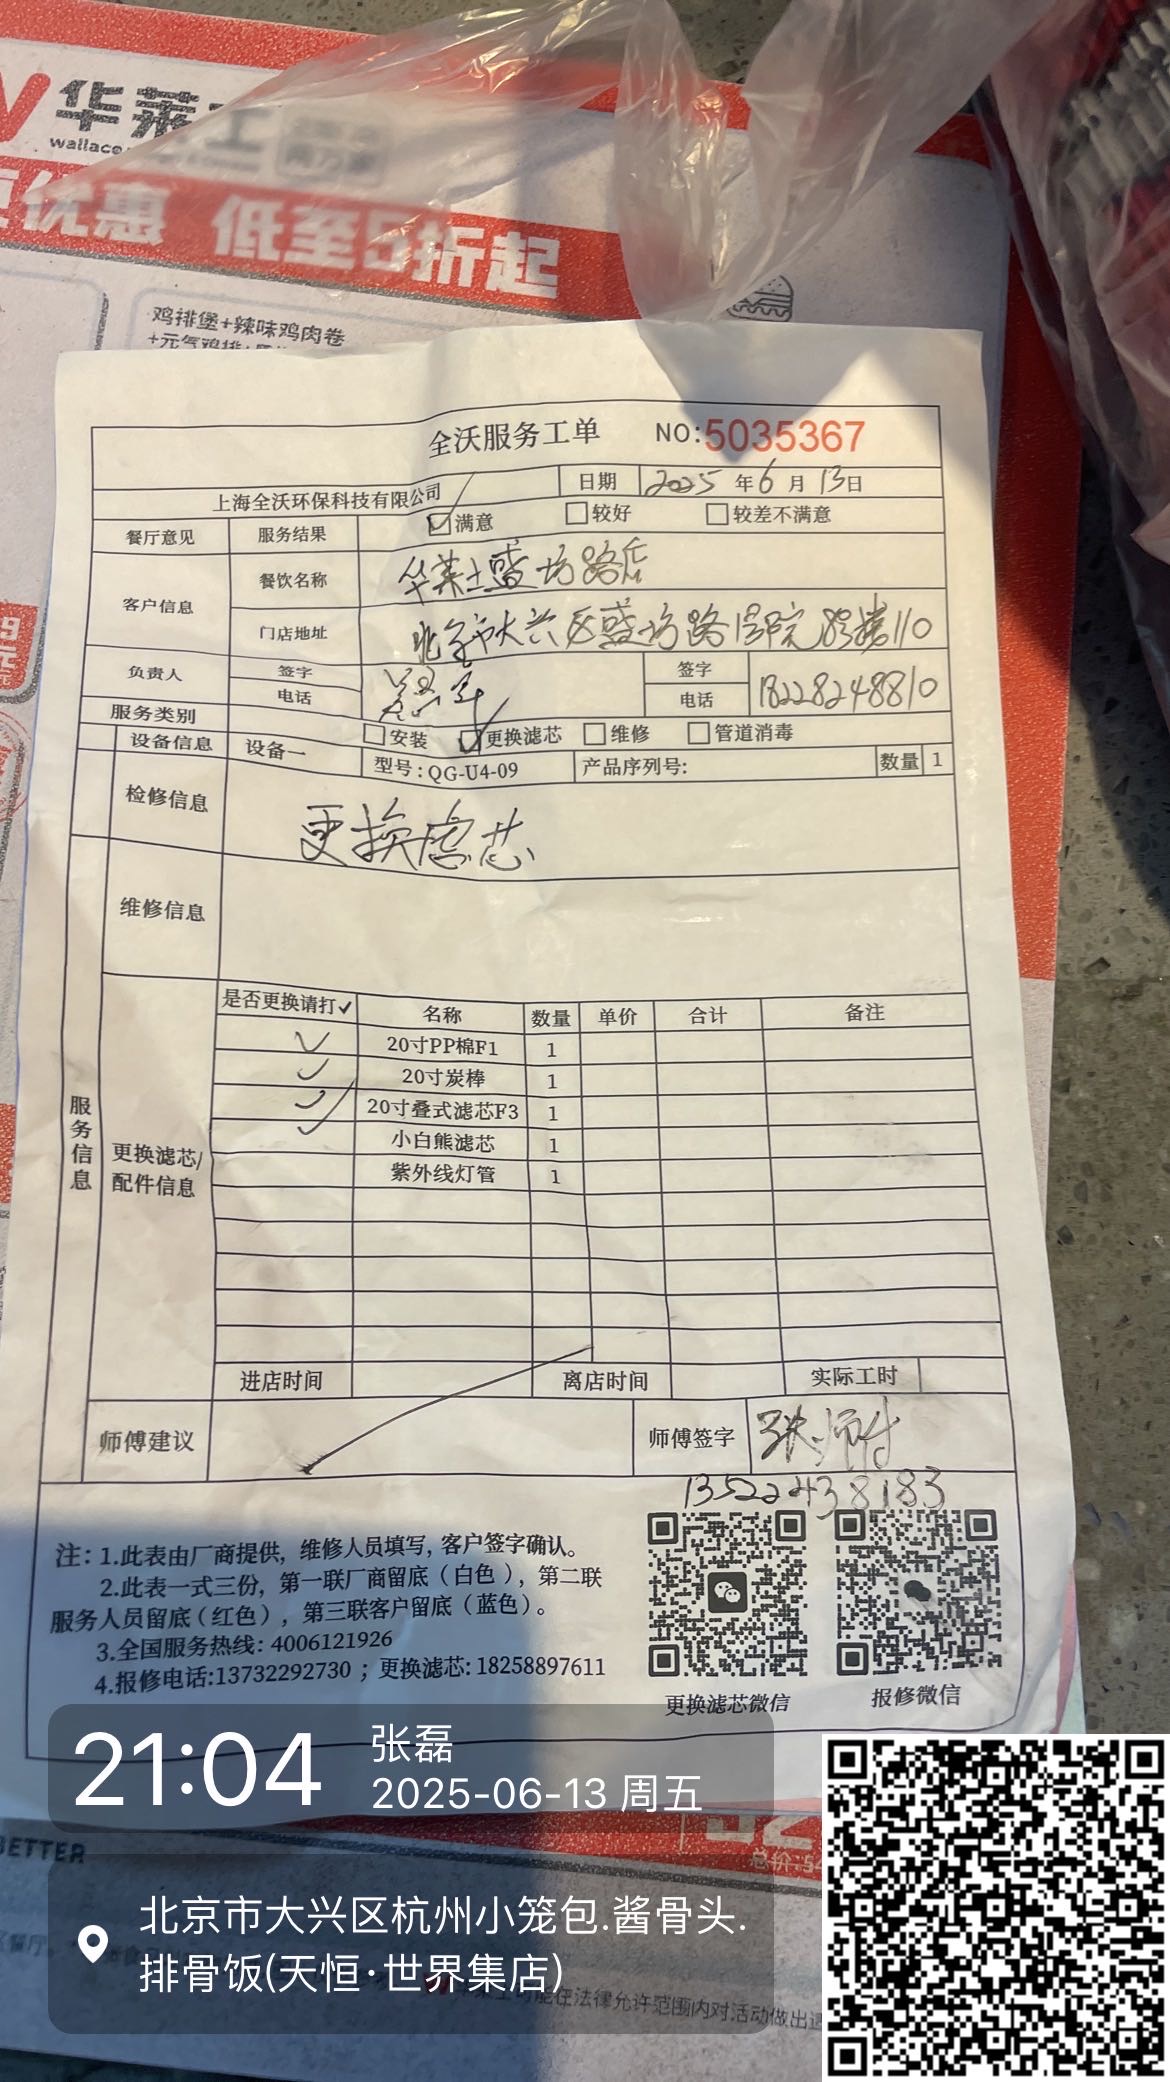 华莱士
wallace
优惠 低至5折起
鸡排堡+辣味鸡肉卷
全沃服务工单 NO:5035367
上海全沃环保科技有限公司 日期 2025 年 6 月 13 日
餐厅意见 服务结果 ☑满意 □较好 □较差不满意
客户信息 餐饮名称 华莱士盛坊路店
门店地址 北京市大兴区盛坊路
负责人 签字 签字
电话 电话 18228248810
服务类别 □安装 ☑更换滤芯 □维修 □管道消毒
设备信息 设备一 型号:QG-U4-09 产品序列号: 数量 1
检修信息 更换滤芯
维修信息
服务信息
更换滤芯/配件信息
是否更换请打✓ 名称 数量 单价 合计 备注
✓ 20寸PP棉F1 1
✓ 20寸炭棒 1
✓ 20寸叠式滤芯F3 1
✓ 小白熊滤芯 1
紫外线灯管 1
进店时间 离店时间 实际工时
师傅建议 师傅签字 张师付
13522438183
注: 1.此表由厂商提供, 维修人员填写, 客户签字确认。
2.此表一式三份, 第一联厂商留底(白色), 第二联
服务人员留底(红色), 第三联客户留底(蓝色)。
3.全国服务热线: 4006121926
4.报修电话:13732292730 ; 更换滤芯: 18258897611
更换滤芯微信 报修微信
21:04 张磊
2025-06-13 周五
BETTER
总价:54
北京市大兴区杭州小笼包.酱骨头.
排骨饭(天恒·世界集店)
在法律允许范围内对活动做出